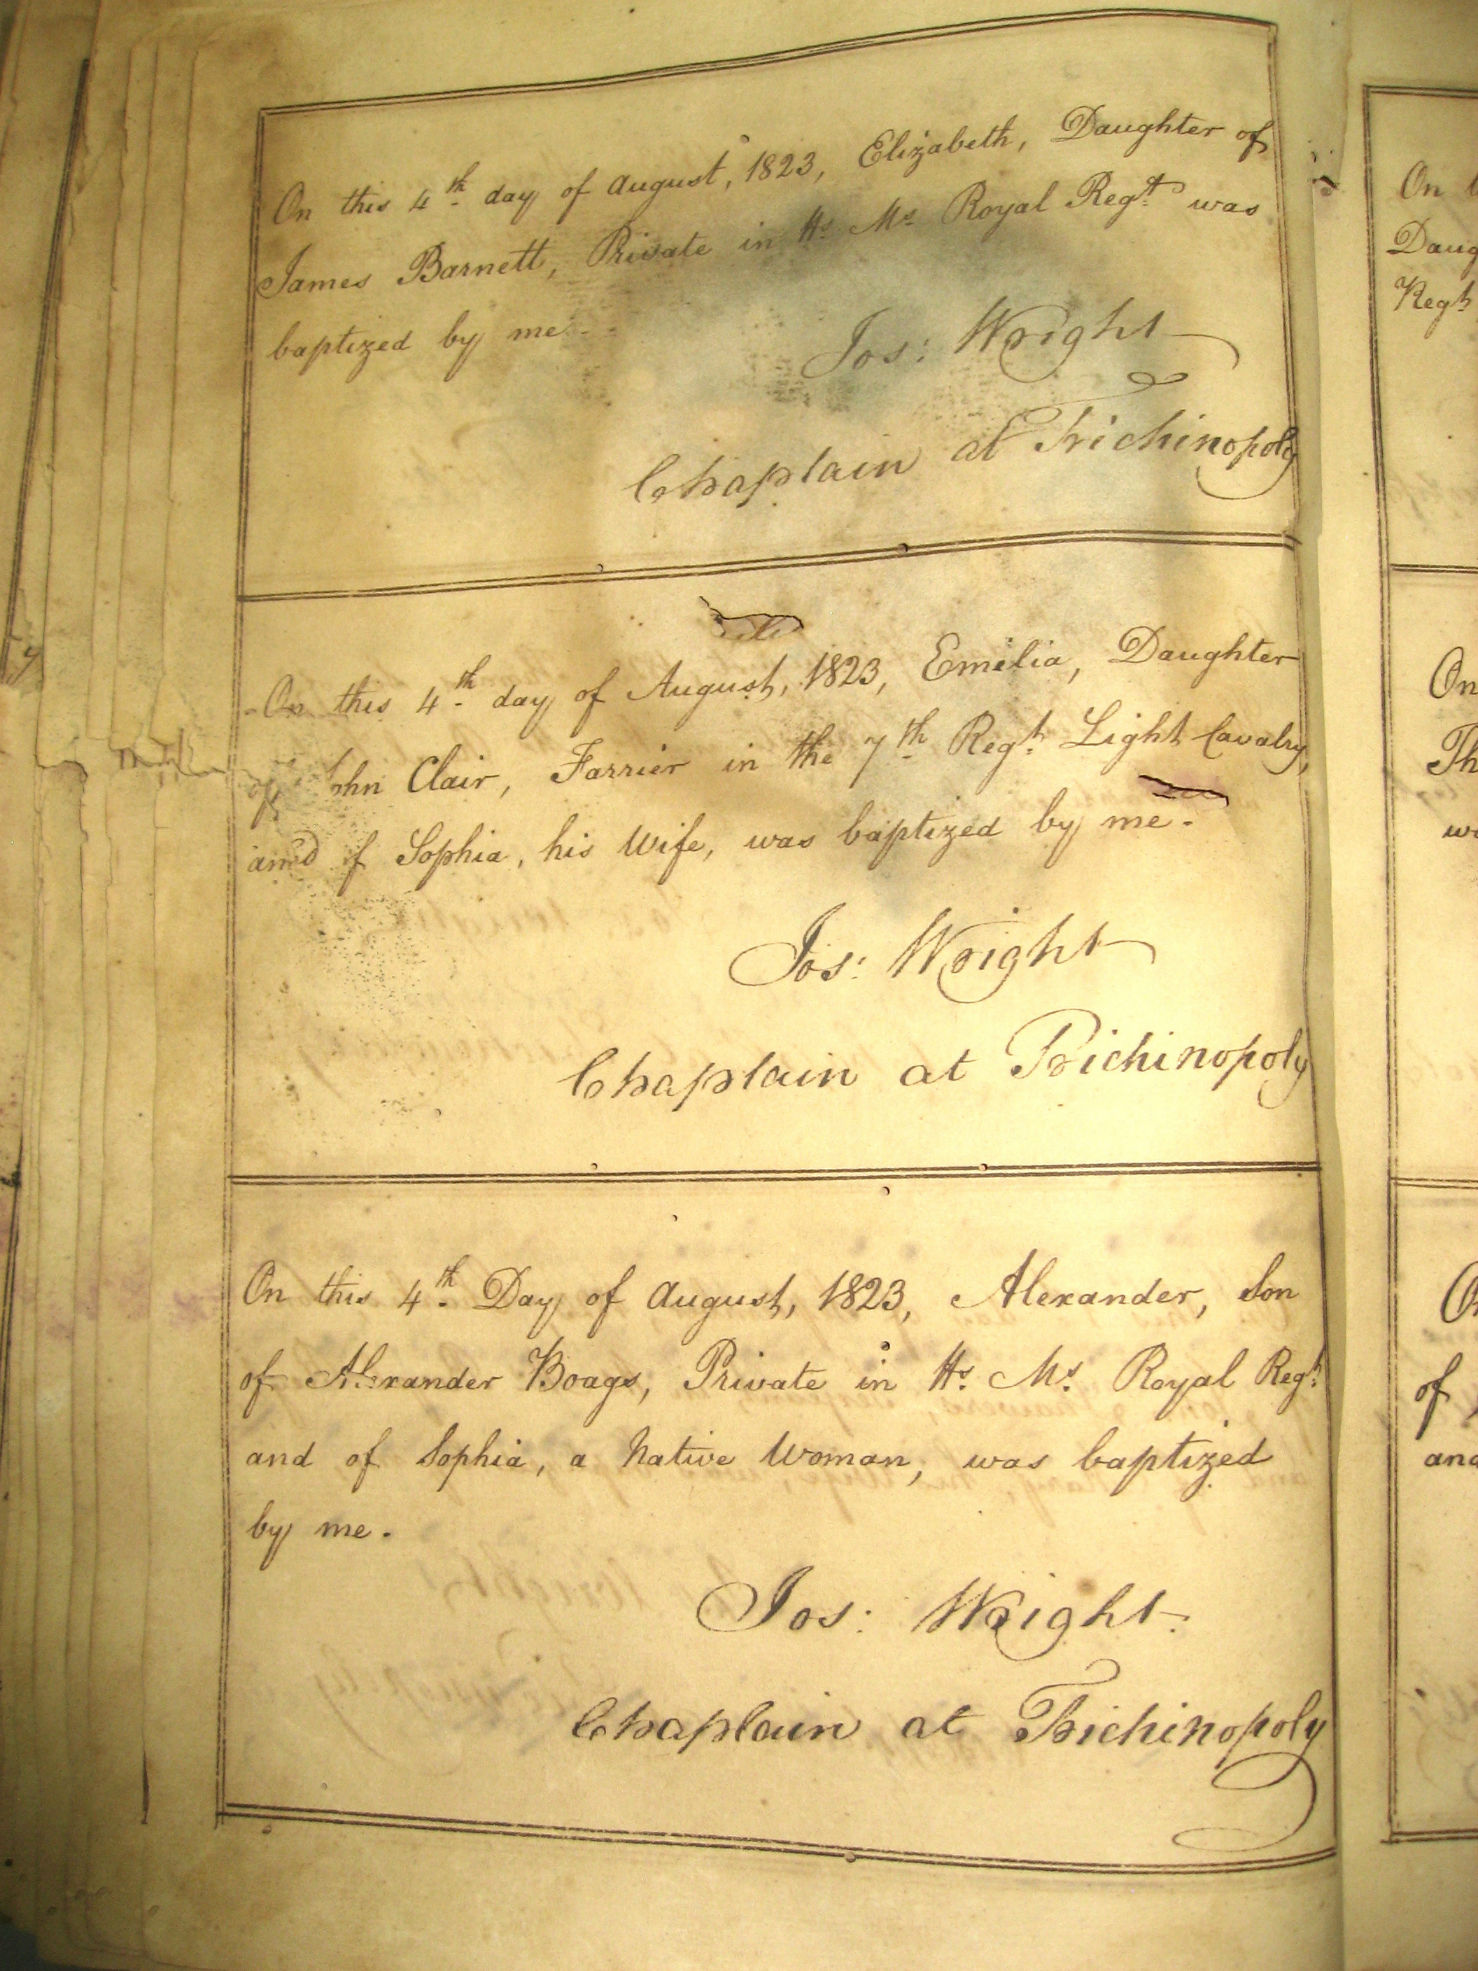 On this 4th day of August, 1823, Elizabeth, Daughter of
James Barnett, Private in Hs. Ms. Royal Regt. was
baptized by me
Jos: Wright
Chaplain at Trichinopoly
On this 4th day of August, 1823, Emilia, Daughter
of John Clair, Farrier in the 7th Regt. Light Cavalry,
and of Sophia, his Wife, was baptized by me.
Jos: Wright
Chaplain at Trichinopoly
On this 4th Day of August, 1823, Alexander, Son
of Alexander Boags, Private in Hs. Ms. Royal Regt.
and of Sophia, a Native Woman, was baptized
by me.
Jos: Wright.
Chaplain at Trichinopoly
On
Regt
On
Th
of
and